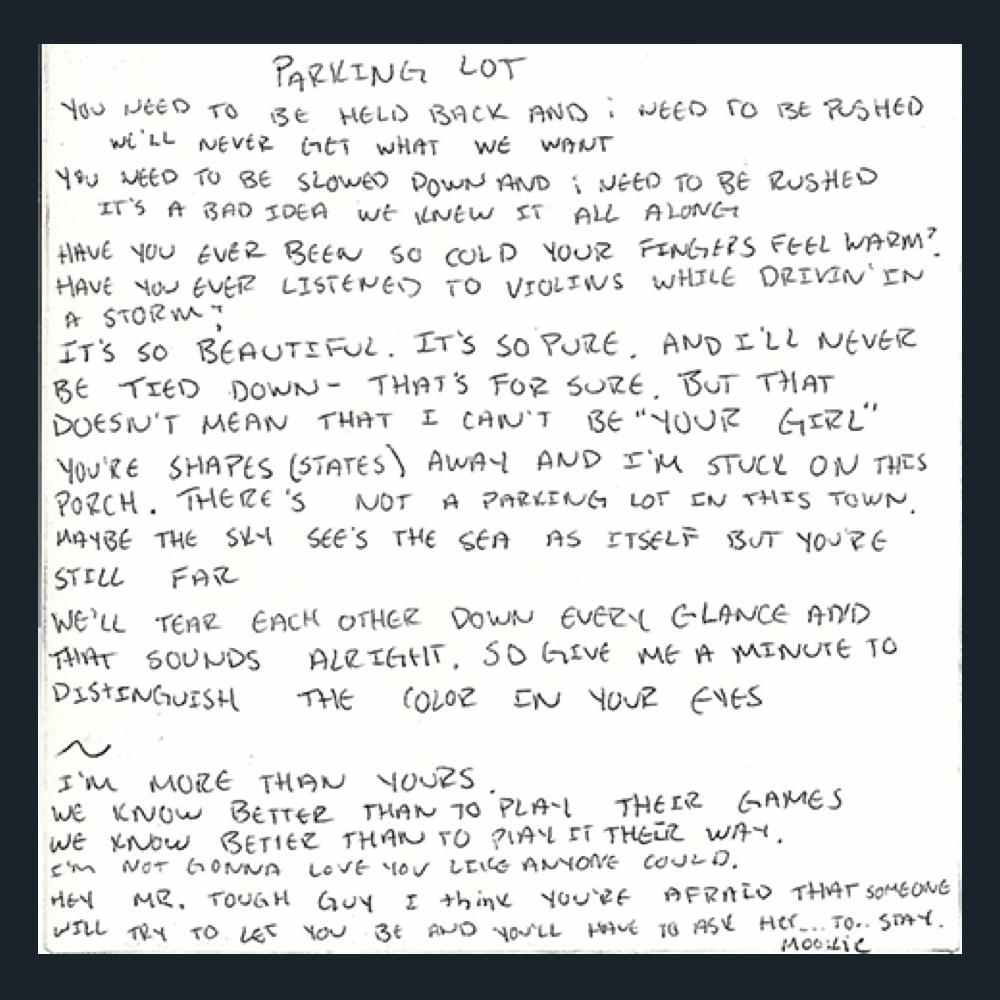 PARKING LOT
YOU NEED TO BE HELD BACK AND i NEED TO BE PUSHED
WE'LL NEVER GET WHAT WE WANT
YOU NEED TO BE SLOWED DOWN AND i NEED TO BE RUSHED
IT'S A BAD IDEA WE KNEW IT ALL ALONG
HAVE YOU EVER BEEN SO COLD YOUR FINGERS FEEL WARM?
HAVE YOU EVER LISTENED TO VIOLINS WHILE DRIVIN' IN
A STORM?
IT'S SO BEAUTIFUL. IT'S SO PURE. AND I'LL NEVER
BE TIED DOWN- THAT'S FOR SURE. BUT THAT
DOESN'T MEAN THAT I CAN'T BE "YOUR GIRL"
YOU'RE SHAPES (STATES) AWAY AND I'M STUCK ON THIS
PORCH. THERE'S NOT A PARKING LOT IN THIS TOWN.
MAYBE THE SKY SEE'S THE SEA AS ITSELF BUT YOU'RE
STILL FAR
WE'LL TEAR EACH OTHER DOWN EVERY GLANCE AND
THAT SOUNDS ALRIGHT. SO GIVE ME A MINUTE TO
DISTINGUISH THE COLOR IN YOUR EYES
~
I'M MORE THAN YOURS.
WE KNOW BETTER THAN TO PLAY THEIR GAMES
WE KNOW BETTER THAN TO PLAY IT THEIR WAY.
I'M NOT GONNA LOVE YOU LIKE ANYONE COULD.
HEY MR. TOUGH GUY I think YOU'RE AFRAID THAT SOMEONE
WILL TRY TO LET YOU BE AND YOU'LL HAVE TO ASK HER... TO.. STAY.